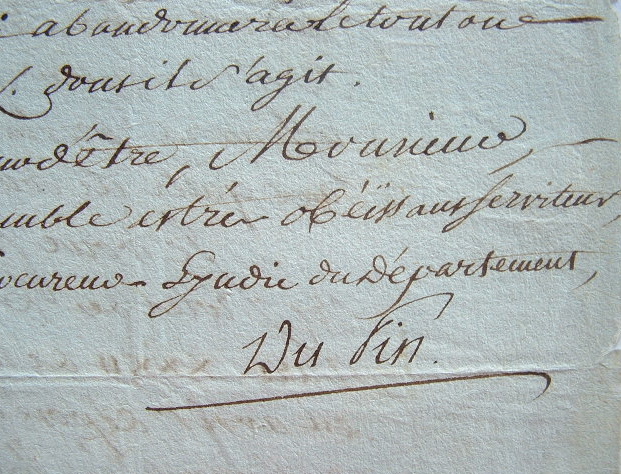 abandonnera le tout ou
dont il s'agit.
d'être, Monsieur,
umble et très obéissant serviteur,
ocureur Syndic du Département,
Du Pin.